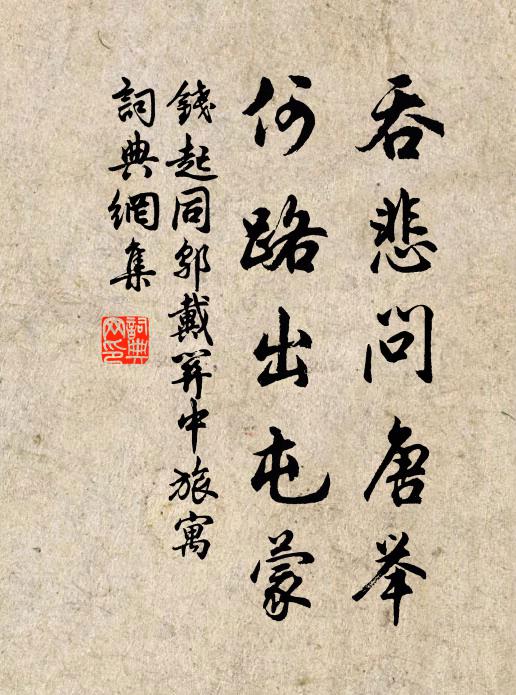 吞悲問唐举
何路出屯蒙
錢起同鄔戴關中旅寓
詞典網集
詞典网印